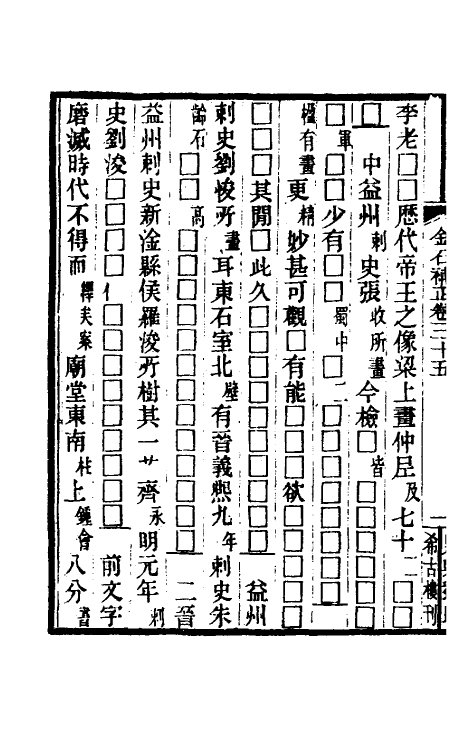 金石補正卷三十五
一
希古樓刊
李老□□歷代帝王之像梁上畫仲呈及七十二□□
□中益州刺史張收所畫今檢□皆□□□□□□
□□軍□□少有□□蜀中□二□□□□□□□□
楹有畫更精妙甚可觀□有能□□□欲□□□□
□□□其閒□此久□□□□□□□□□□□益州
刺史劉悛所畫耳東石室北壁有晉義熙九年刺史朱
齡石□□高□□□□□□□□□□□□□二晉
益州刺史新淦縣侯羅悛所樹其一廿齊永明元年刺
史劉悛□□□□□亻□□□□□□□□□前文字
磨滅時代不得而釋矣案廟堂東南柱上鍾會八分書